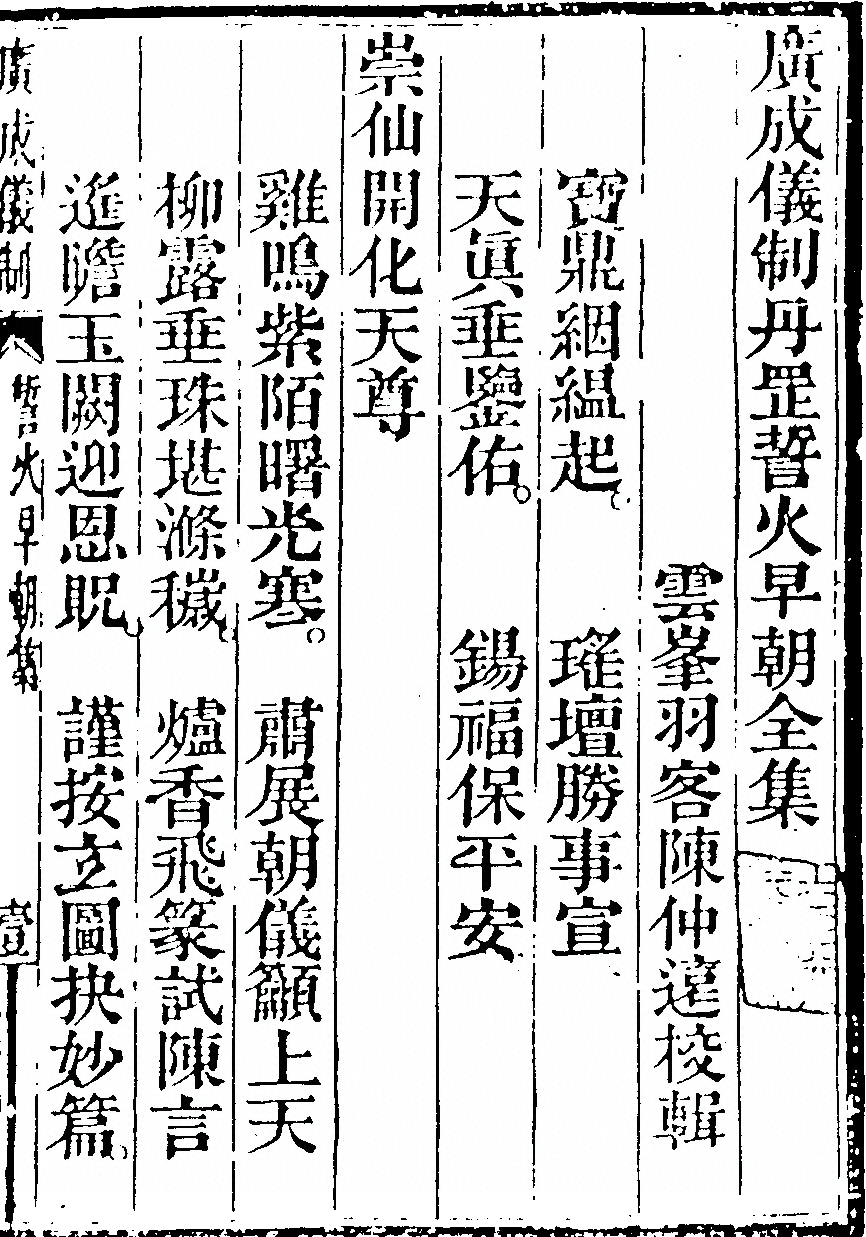 廣成儀制丹罡誓火早朝全集
雲峯羽客陳仲遠校輯
寶鼎絪縕起。　璀壇勝事宣
天真垂鑒佑。　錫福保平安
崇仙開化天尊
雞鳴紫陌曙光寒。　肅展朝儀籲上天
柳露垂珠堪滌穢。　爐香飛篆試陳言
遙瞻玉闕迎恩貺。　謹按玄圖抉妙篇。
廣成儀制　誓火早朝集　壹